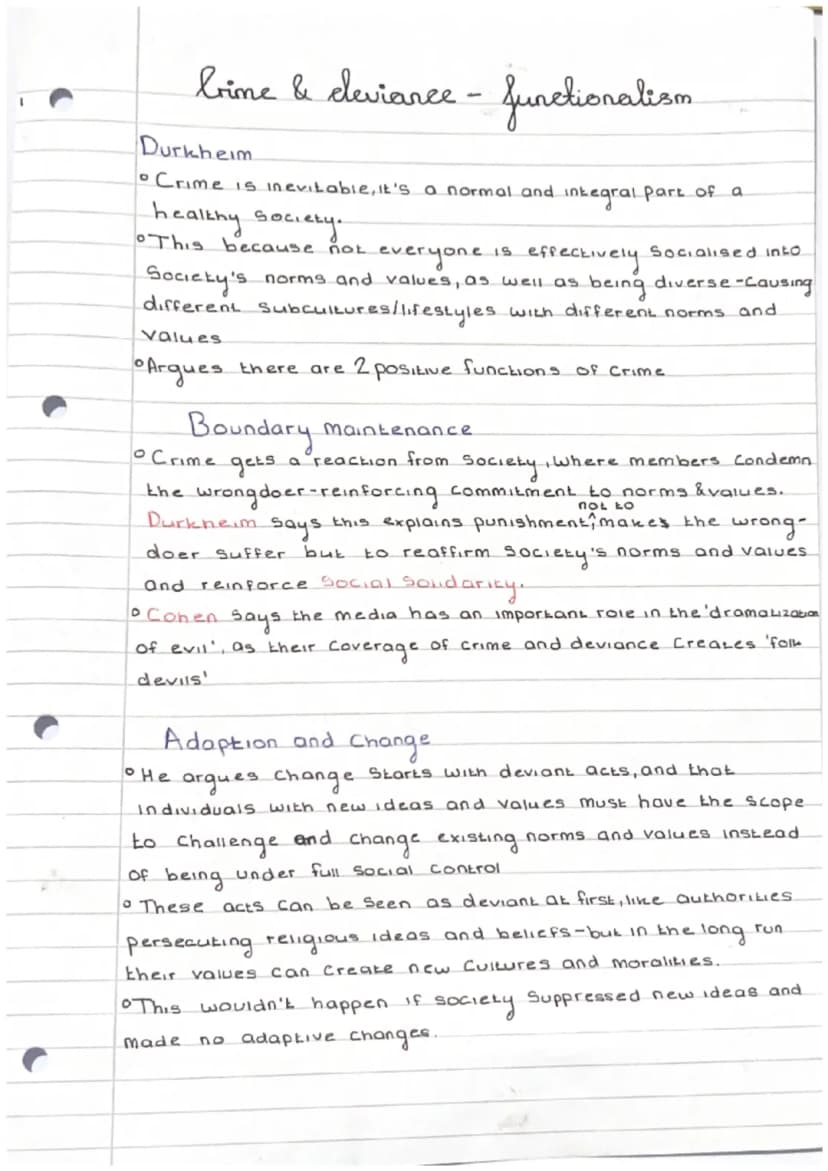 Crime & deviance - functionalism
Durkheim
° Crime is inevitable, it's a normal and integral part of a
healthy society.
° This because not everyone is effectively socialised into
society's norms and values, as well as being diverse - causing
different subcultures/lifestyles with different norms and
values
° Argues there are 2 positive functions of crime
Boundary maintenance
° Crime gets a reaction from society, where members condemn
the wrongdoer - reinforcing commitment to norms & values.
not to
Durkheim says this explains punishment; ^ makes the wrong-
doer suffer but to reaffirm society's norms and values
and reinforce social solidarity.
° Cohen says the media has an important role in the 'dramatization
of evil', as their coverage of crime and deviance creates 'folk
devils'
Adaption and change
° He argues change starts with deviant acts, and that
individuals with new ideas and values must have the scope
to challenge and change existing norms and values instead
of being under full social control
° These acts can be seen as deviant at first, like authorities
persecuting religious ideas and beliefs - but in the long run
their values can create new cultures and moralities.
° This wouldn't happen if society suppressed new ideas and
made no adaptive changes.